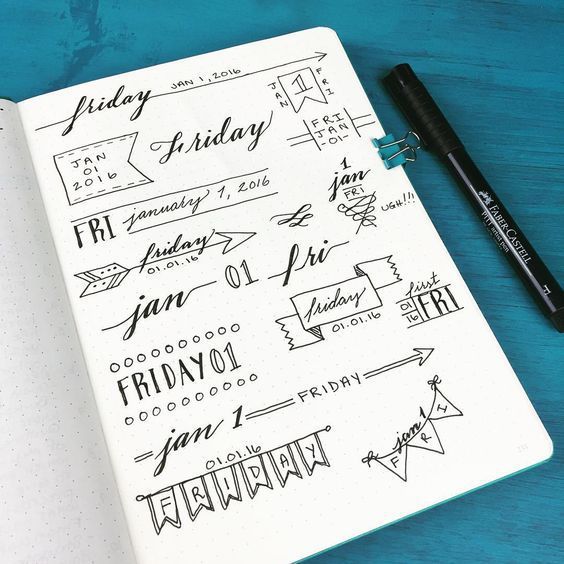 friday JAN 1, 2016
JAN 1 FRI
JAN
01
2016
Friday
FRI
JAN
-01-
FRI january 1, 2016
1
jan
FRI
UGH!!!
friday
01.01.16
jan 01
fri
friday
01.01.16
first
01 16 FRI
FRIDAY 01
jan 1 FRIDAY
01.01.16
FRIDAY
jan 1
FRI
FABER-CASTELL
PITT artist pen
F